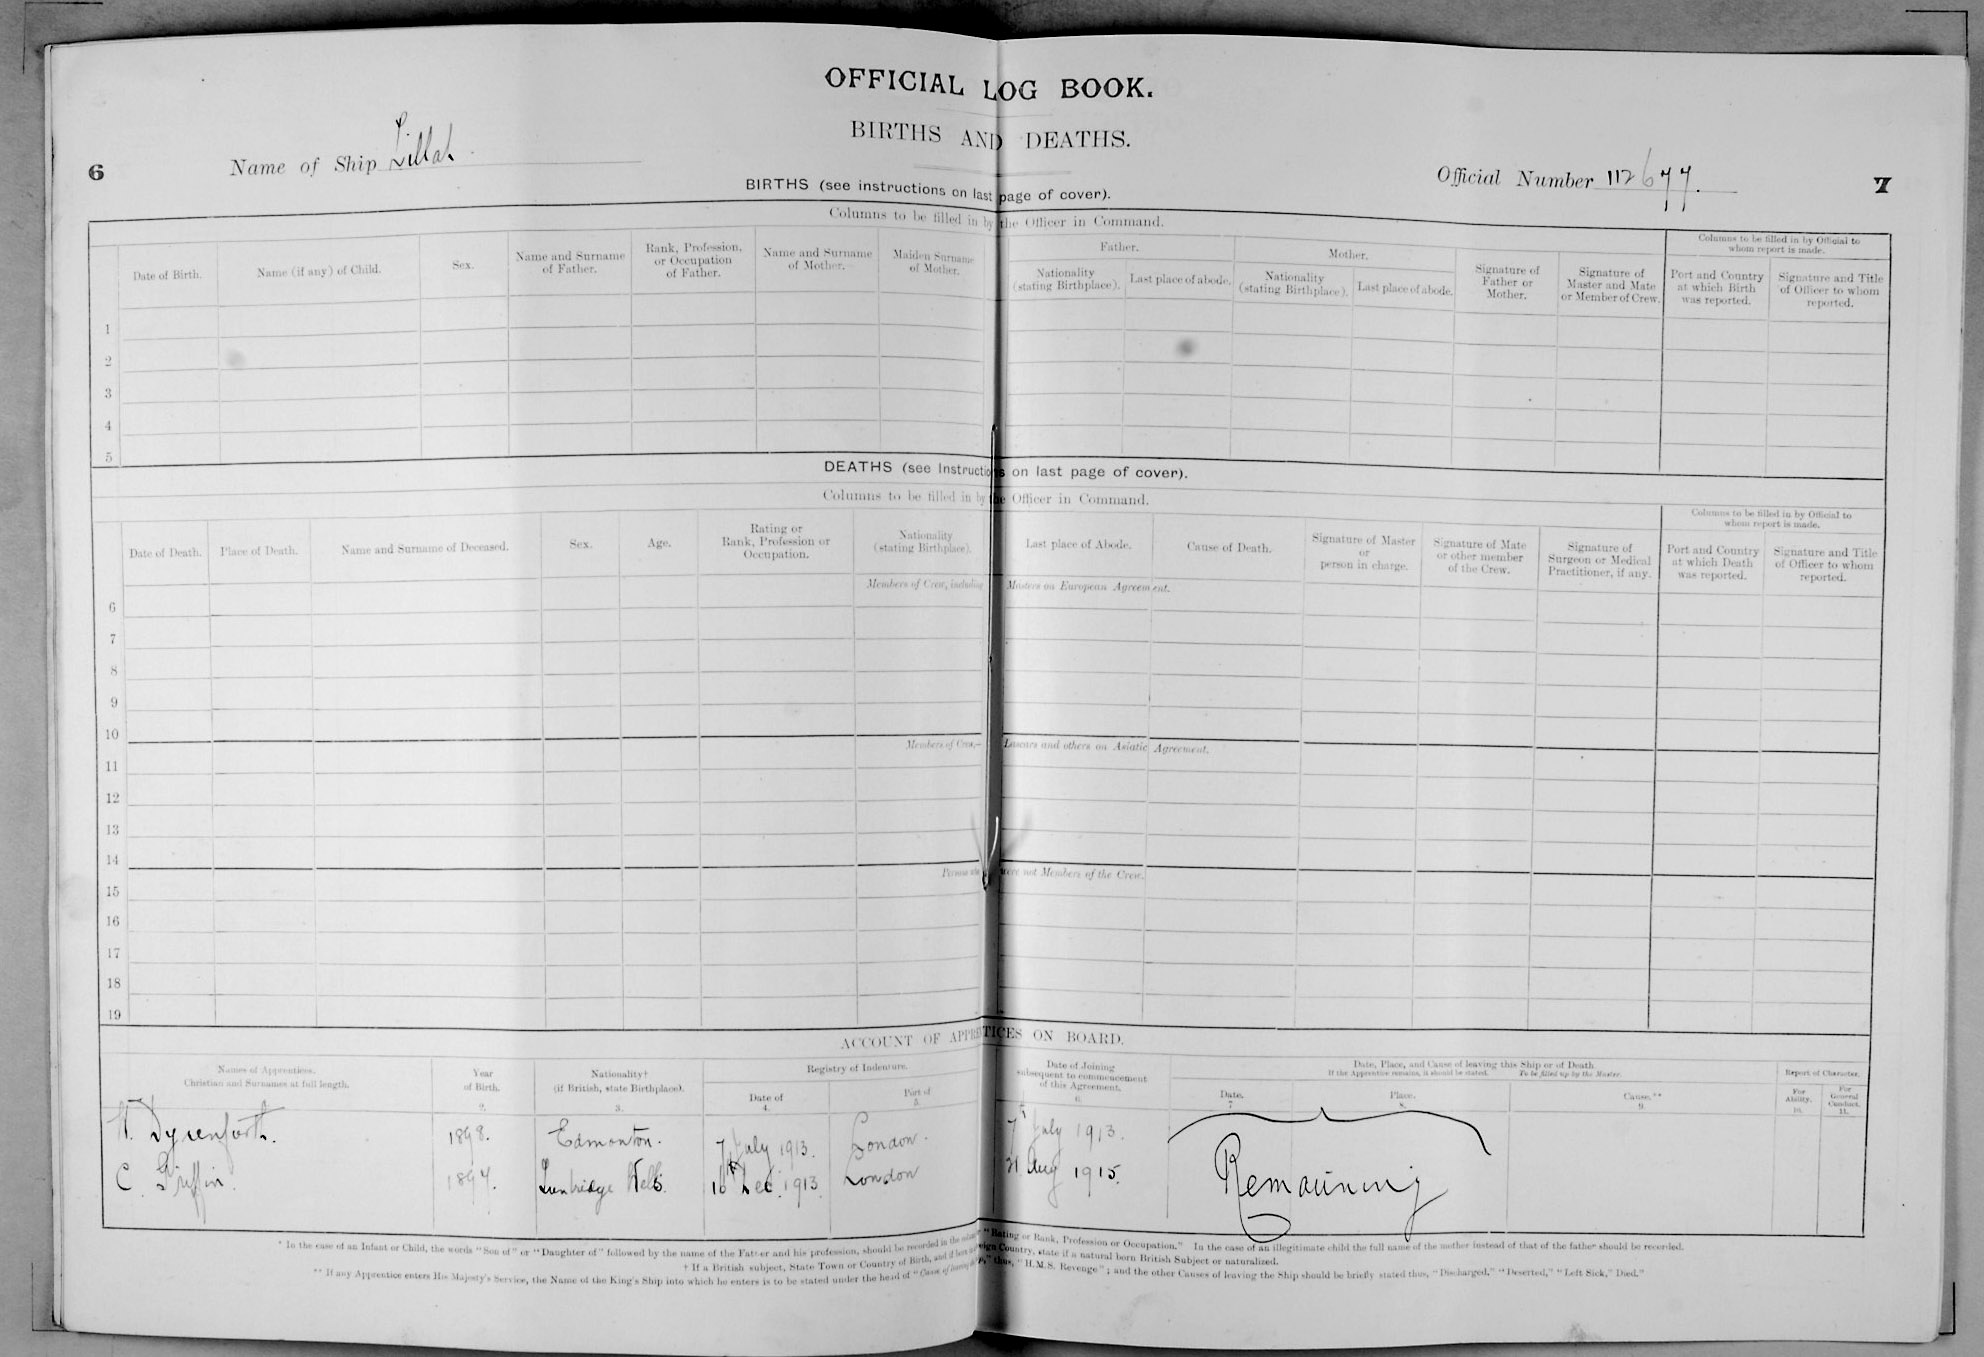 OFFICIAL LOG BOOK.
BIRTHS AND DEATHS.
6
Name of Ship Lillah
Official Number 112677.
7
BIRTHS (see instructions on last page of cover).
Columns to be filled in by the Officer in Command.
Columns to be filled in by Official to whom report is made.
Father.
Mother.
Date of Birth.
Name (if any) of Child.
Sex.
Name and Surname of Father.
Rank, Profession, or Occupation of Father.
Name and Surname of Mother.
Maiden Surname of Mother.
Nationality (stating Birthplace).
Last place of abode.
Nationality (stating Birthplace).
Last place of abode.
Signature of Father or Mother.
Signature of Master and Mate or Member of Crew.
Port and Country at which Birth was reported.
Signature and Title of Officer to whom reported.
1
2
3
4
5
DEATHS (see Instructions on last page of cover).
Columns to be filled in by the Officer in Command.
Columns to be filled in by Official to whom report is made.
Date of Death.
Place of Death.
Name and Surname of Deceased.
Sex.
Age.
Rating or Rank, Profession or Occupation.
Nationality (stating Birthplace).
Last place of Abode.
Cause of Death.
Signature of Master or person in charge.
Signature of Mate or other member of the Crew.
Signature of Surgeon or Medical Practitioner, if any.
Port and Country at which Death was reported.
Signature and Title of Officer to whom reported.
Members of Crew, including Masters on European Agreement.
6
7
8
9
10
Members of Crew,— Lascars and others on Asiatic Agreement.
11
12
13
14
Persons who were not Members of the Crew.
15
16
17
18
19
ACCOUNT OF APPRENTICES ON BOARD.
Names of Apprentices. Christian and Surnames at full length.
Year of Birth. 2.
Nationality† (if British, state Birthplace). 3.
Registry of Indenture.
Date of 4.
Port of 5.
Date of Joining subsequent to commencement of this Agreement. 6.
Date, Place, and Cause of leaving this Ship or of Death.
If the Apprentice remains, it should be stated. To be filled up by the Master.
Date. 7
Place. 8.
Cause.** 9.
Report of Character.
For Ability. 10.
For General Conduct. 11.
Dysenforth. 1898. Edmonton. 7 July 1913. London. 7th July 1913.
C. Griffin. 1897. Tunbridge Wells. 10th Dec. 1913 London 21 Aug 1915.
Remaining
* In the case of an Infant or Child, the words "Son of" or "Daughter of" followed by the name of the Father and his profession, should be recorded in the column "Rating or Rank, Profession or Occupation." In the case of an illegitimate child the full name of the mother instead of that of the father should be recorded.
† If a British subject, State Town or Country of Birth, and if born in foreign Country, state if a natural born British Subject or naturalized.
** If any Apprentice enters His Majesty's Service, the Name of the King's Ship into which he enters is to be stated under the head of "Cause of leaving thus, "H.M.S. Revenge"; and the other Causes of leaving the Ship should be briefly stated thus, "Discharged," "Deserted," "Left Sick," Died."